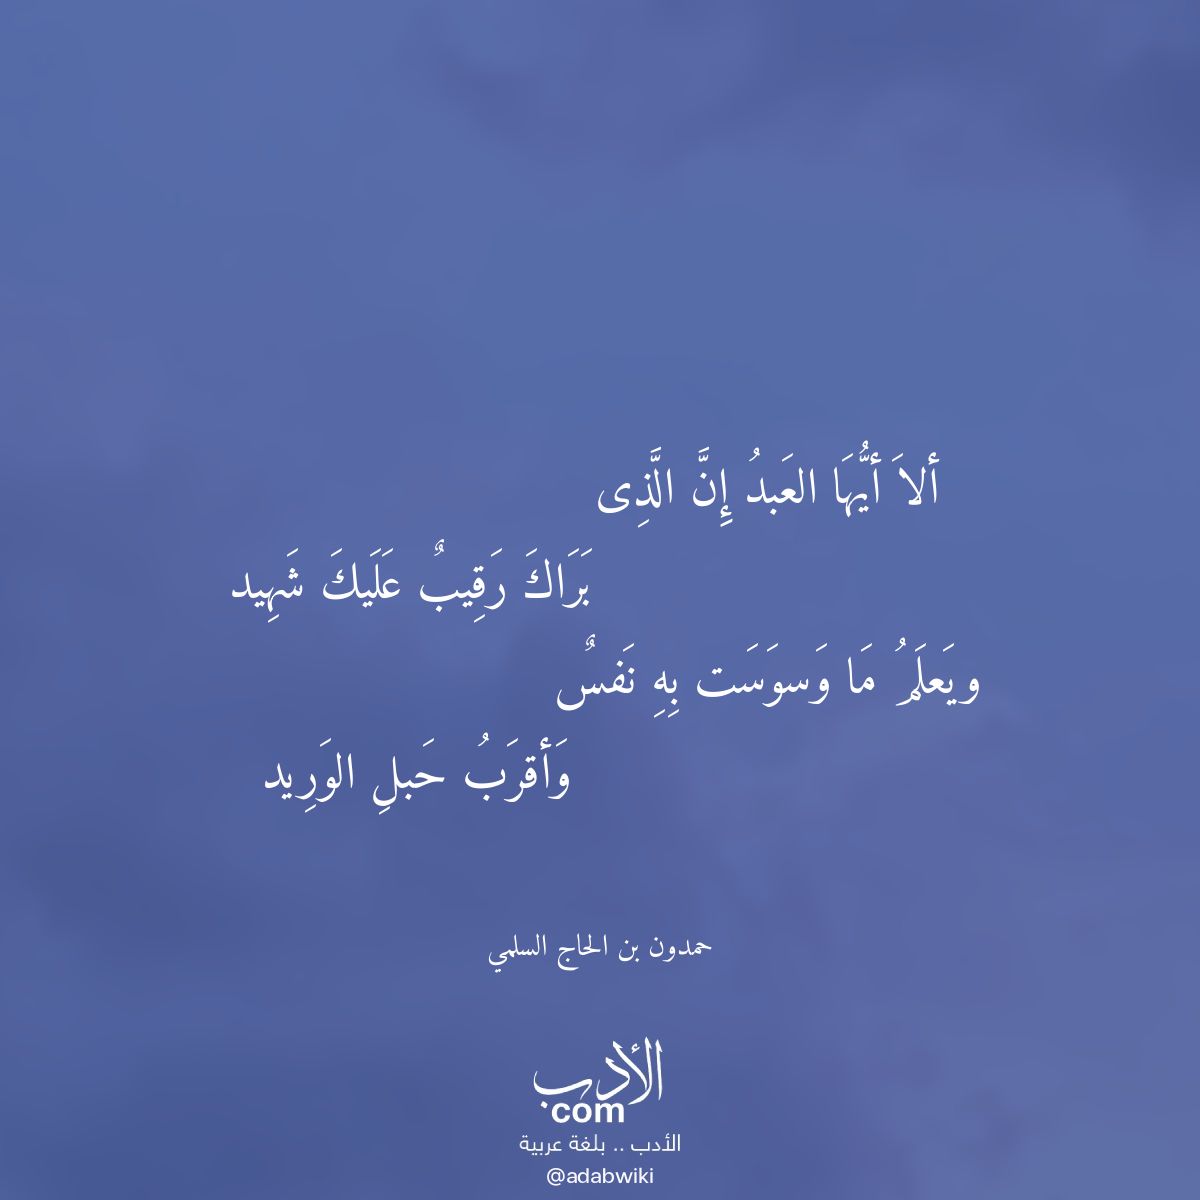 ألاَ أيُّهَا العَبدُ إِنَّ الَّذِى
بَرَاكَ رَقِيبٌ عَلَيكَ شَهِيد
ويَعلَمُ مَا وَسوَسَت بِهِ نَفسٌ
وَأقرَبُ حَبلِ الوَرِيد
حمدون بن الحاج السلمي
الأدب
com
الأدب .. بلغة عربية
@adabwiki